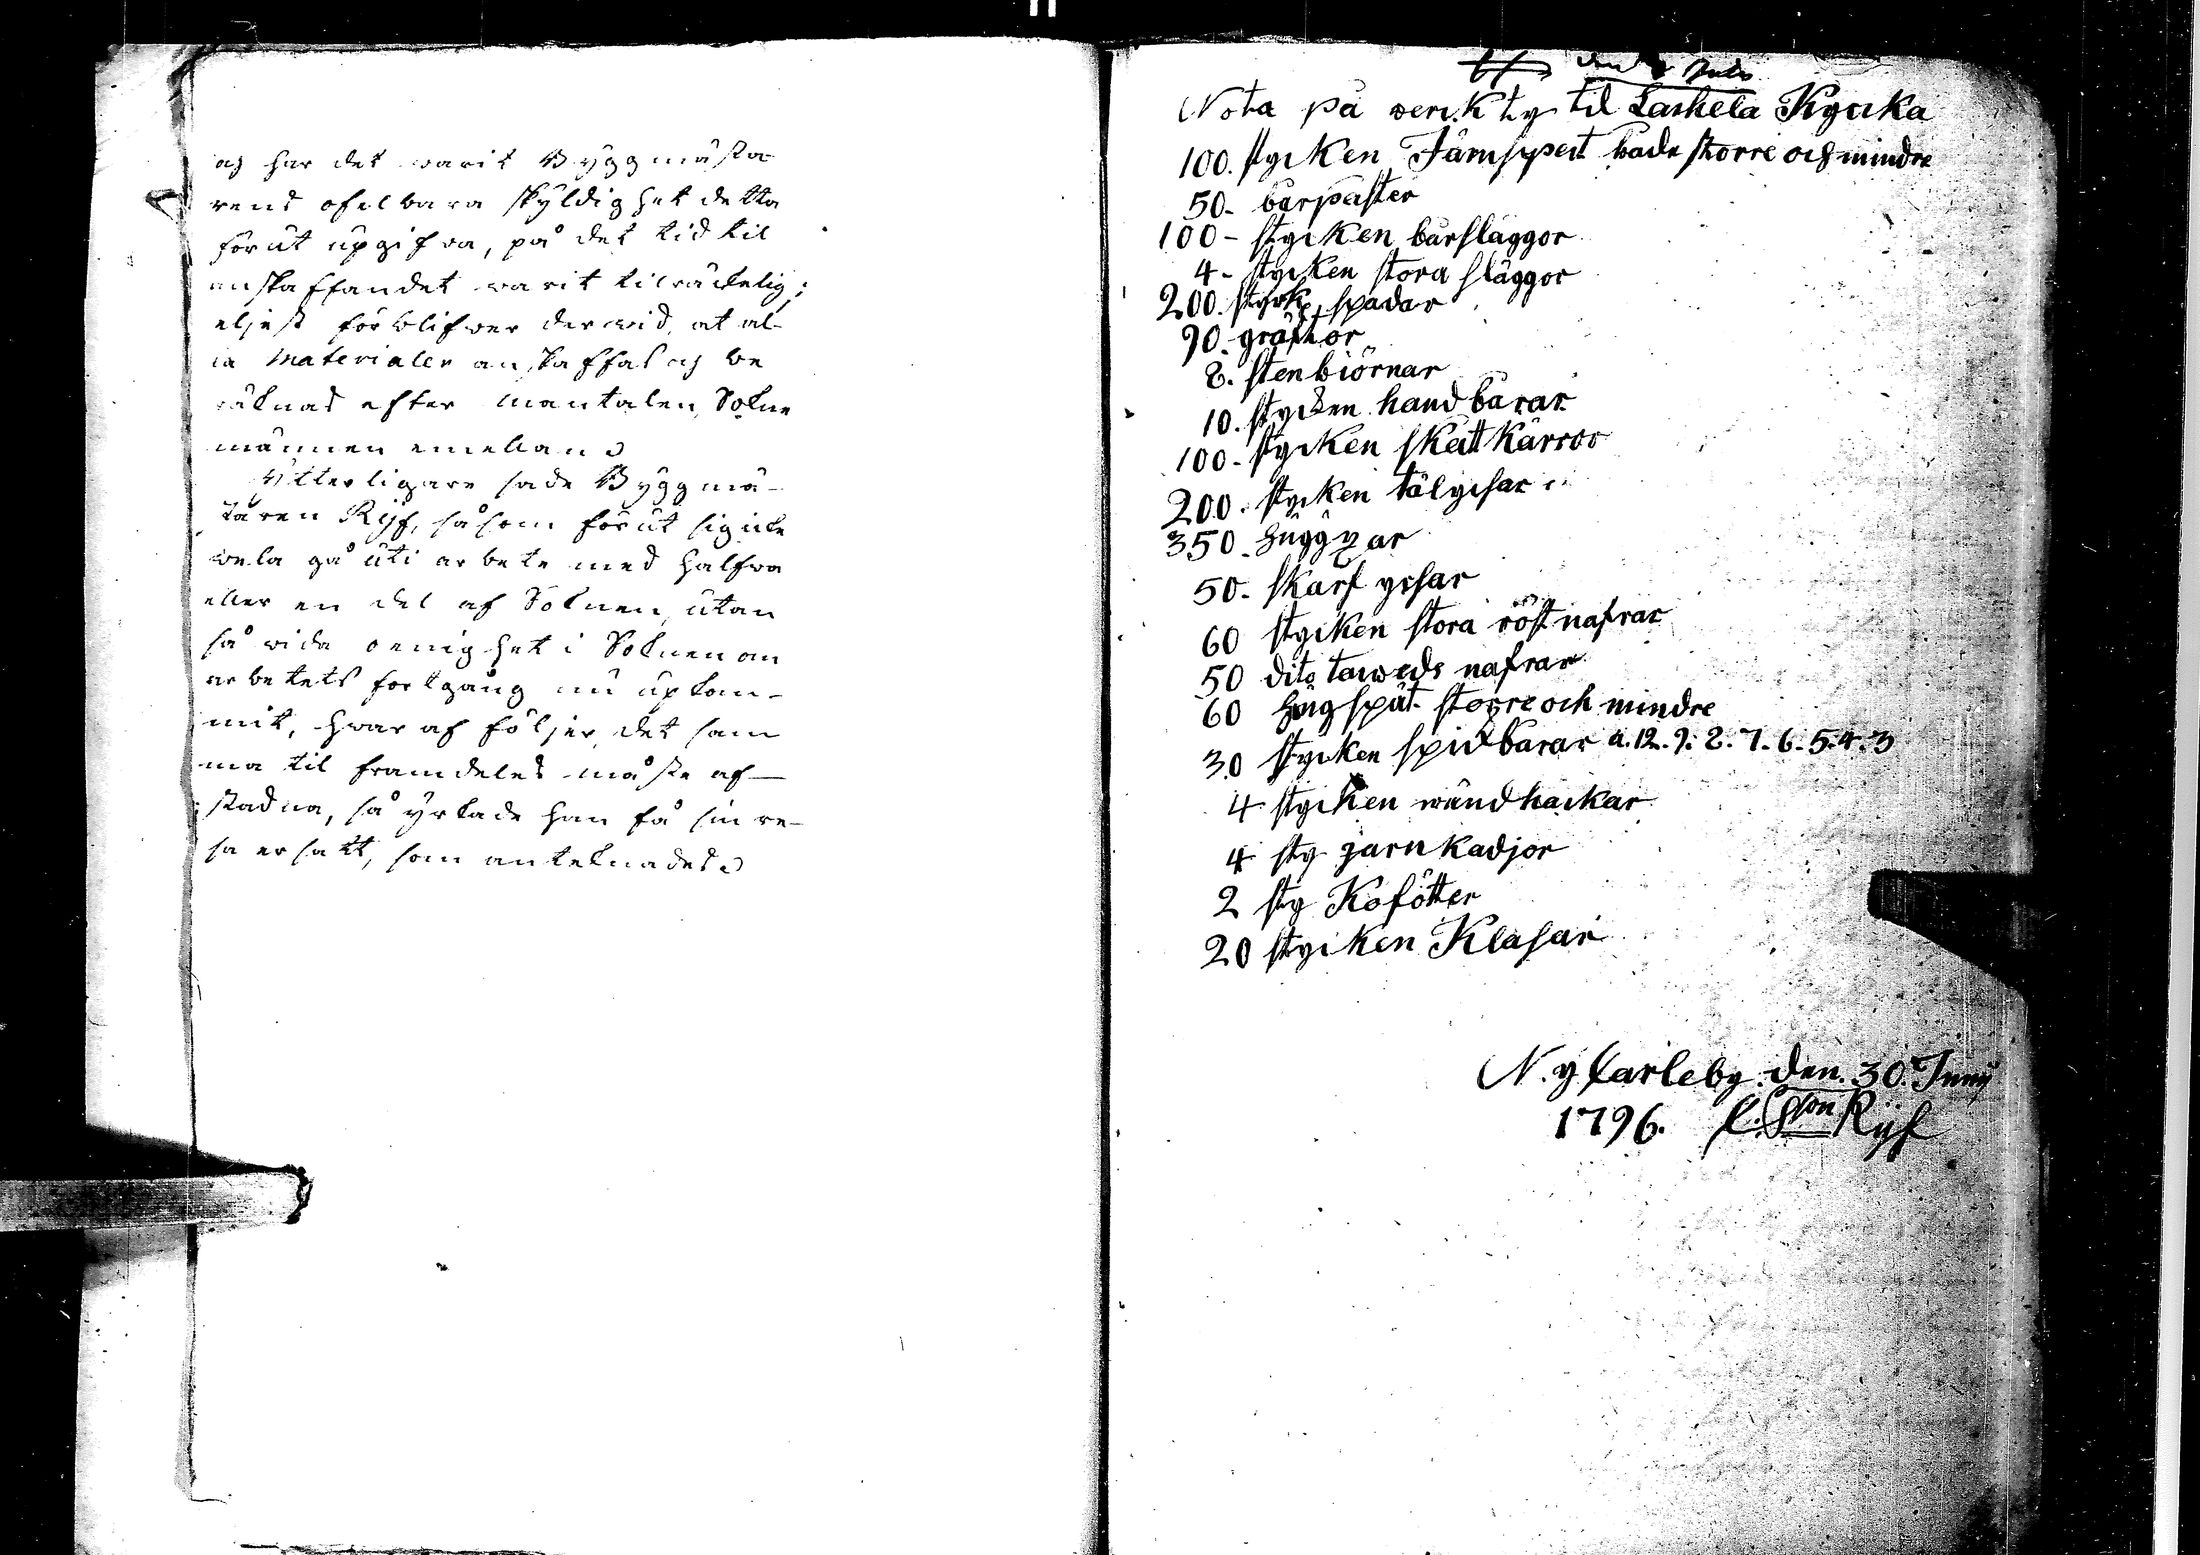 och har det warit Byggmästa
rens ofelbara skyldighet detta
förut upgifwa, på det tid til
anskaffandet warit tilräckelig;
eljest förblifwer derwid, at al-
la Materialer anskaffas och be
räknas efter mantalen, Sokne
männen emellan.
Ytterligare sade Byggmä-
staren Rijf, såsom förut sig icke
wela gå uti arbete med halfwa
eller en del af Soknen, utan
så wida oenighet i Soknen om
arbetets fortgång nu upkom-
mit, hwaraf följer, det sam
ma til framdeles måste af-
stadna, så yrkade han få sin re-
sa ersatt, som antecknades.
Nota på werck ty til Laihela Kyrcka
100. stycken Järnspett både störreoch mindre
50- bärpäster
100- stycken bärsläggor
4- stycken stora släggor
200. styck spadar
90. gräftor
8. stenbiörnar
10. stycken handbårar
100- stycken skåttkärror
200. stycken tälgisar
350. huggyxar
50. skarf ycsar
60 stycken stora röstnafrar
50 dito taweds nafrar
60 hugspät större och mindre
30 stycken spickbårar a. 12. 9. 8. 7. 6. 5. 4. 3
4 stycken wändhackar
4 sty jarn kadjor
2 sty Kofötter
20 stycken Klasar
N. y Carleby. den. 30. Juny
1796. C. Json Rijf